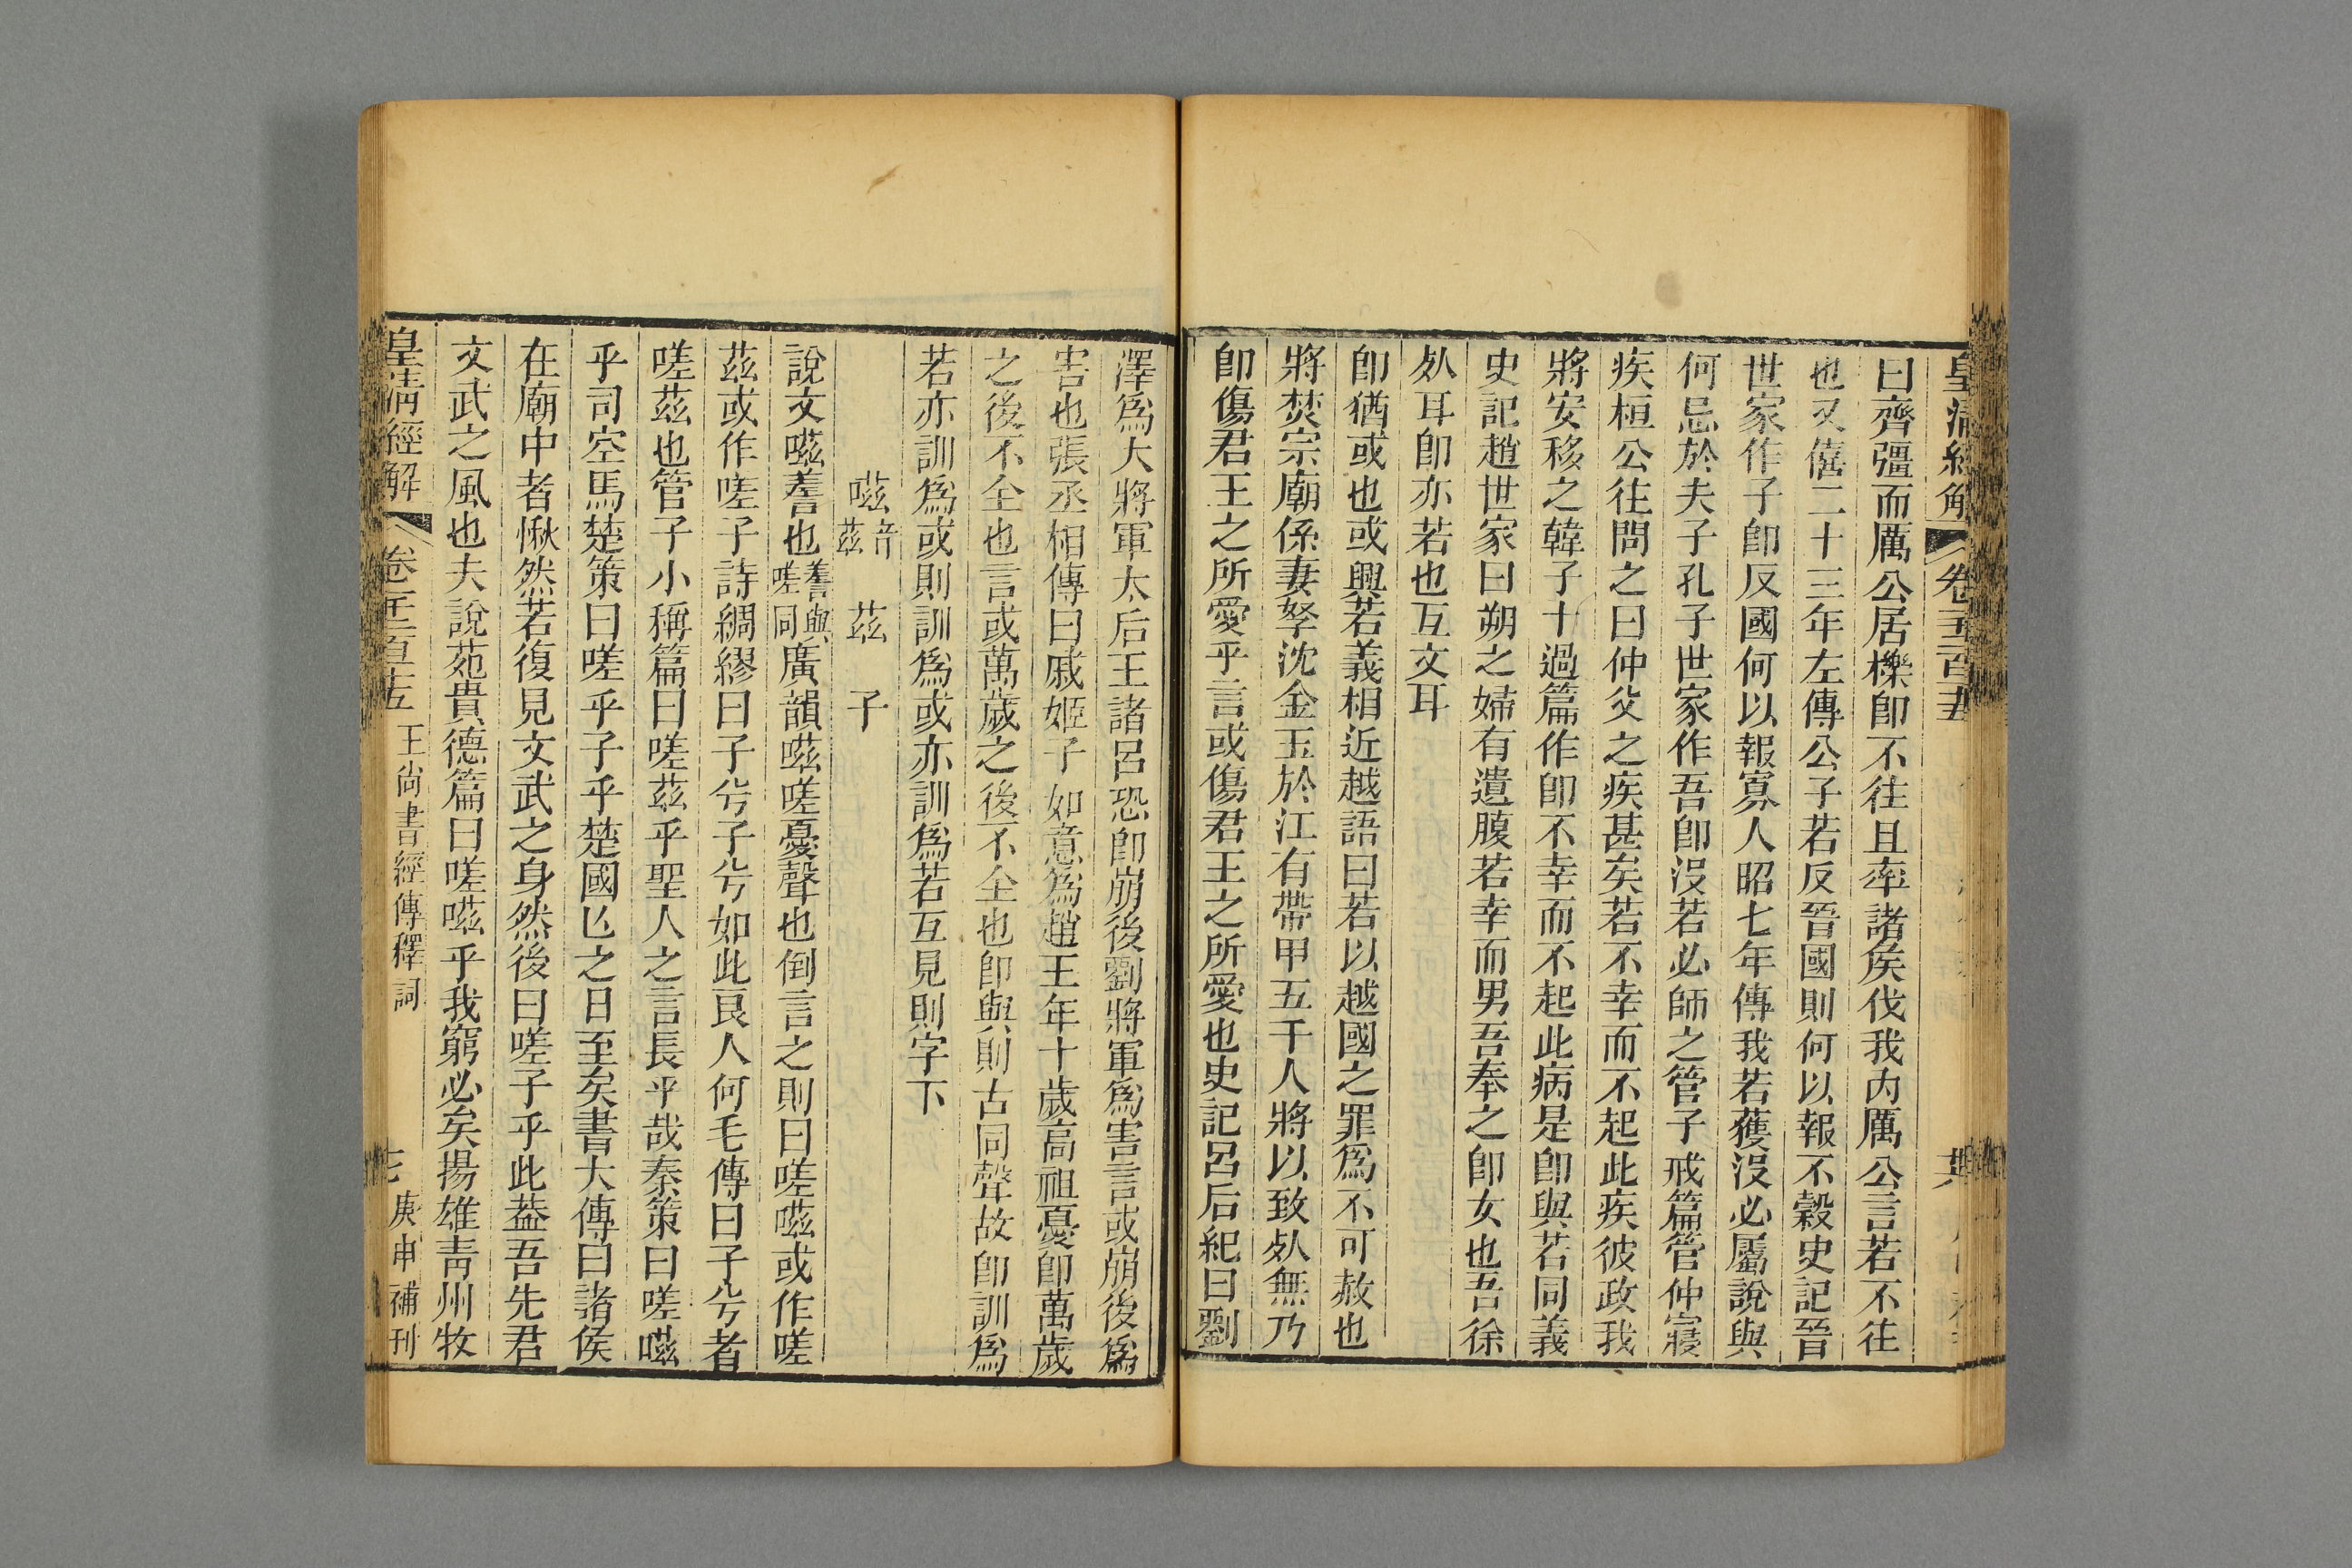 皇清經解 卷千二百十五
曰齊彊而厲公居櫟卽不往且率諸侯伐我內厲公言若不往
也又僖二十三年左傳公子若反晉國則何以報不穀史記晉
世家作子卽反國何以報寡人昭七年傳我若獲沒必屬說與
何忌於夫子孔子世家作吾卽沒若必師之管子戒篇管仲寢
疾桓公往問之曰仲父之疾甚矣若不幸而不起此疾彼政我
將安移之韓子十過篇作卽不幸而不起此病是卽與若同義
史記趙世家曰朔之婦有遺腹若幸而男吾奉之卽女也吾徐
死耳卽亦若也互文耳
卽猶或也或與若義相近越語曰若以越國之罪爲不可赦也
將焚宗廟係妻孥沈金玉於江有帶甲五千人將以致死無乃
卽傷君王之所愛乎言或傷君王之所愛也史記呂后紀曰劉
澤爲大將軍太后王諸呂恐卽崩後劉將軍爲害言或崩後爲
害也張丞相傳曰戚姬子如意爲趙王年十歲高祖憂卽萬歲
之後不全也言或萬歲之後不全也卽與則古同聲故卽訓爲
若亦訓爲或則訓爲或亦訓爲若互見則字下
嗞音茲 茲 子
說文嗞𧨳也𧨳與嗟同廣韻嗞嗟憂聲也倒言之則曰嗟嗞或作嗟
茲或作嗟子詩綢繆曰子兮子兮如此良人何毛傳曰子兮者
嗟茲也管子小稱篇曰嗟茲乎聖人之言長乎哉秦策曰嗟嗞
乎司空馬楚策曰嗟乎子乎楚國亾之日至矣書大傳曰諸侯
在廟中者愀然若復見文武之身然後曰嗟子乎此葢吾先君
文武之風也夫說苑貴德篇曰嗟嗞乎我窮必矣揚雄靑州牧
皇清經解 卷千二百十五 王尙書經傳釋詞 七 庚申補刊